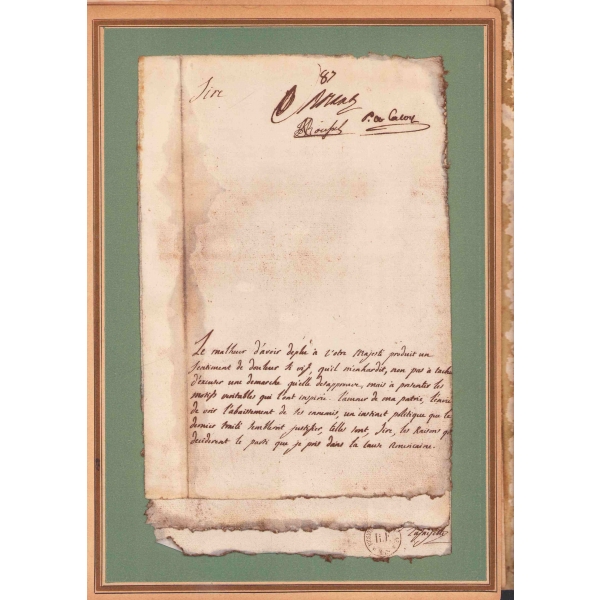 87
Sire
Le malheur d'avoir deplu à Votre Majesté produit un
sentiment de douleur si vif, qu'il m'enhardit, non pas à tacher
d'excuser une demarche qu'elle desapprouve, mais à presenter les
motifs veritables qui l'ont inspirée. l'amour de ma patrie, l'envie
de voir l'abaissement de ses ennemis, un instinct politique que le
dernier traité sembleroit justifier, telles sont, Sire, les Raisons qui
deciderent le parti que je pris dans la cause Americaine.
Lafayette